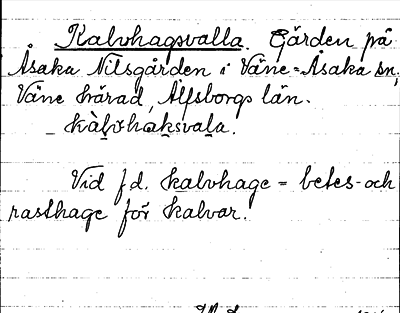 Kalvhagsvalla. Gården på
Åsaka Nilsgården i Väne-Åsaka sn,
Väne härad, Älfsborgs län.
kàlvhaksvala.
Vid f.d. kalvhage = betes- och
rasthage för kalvar.